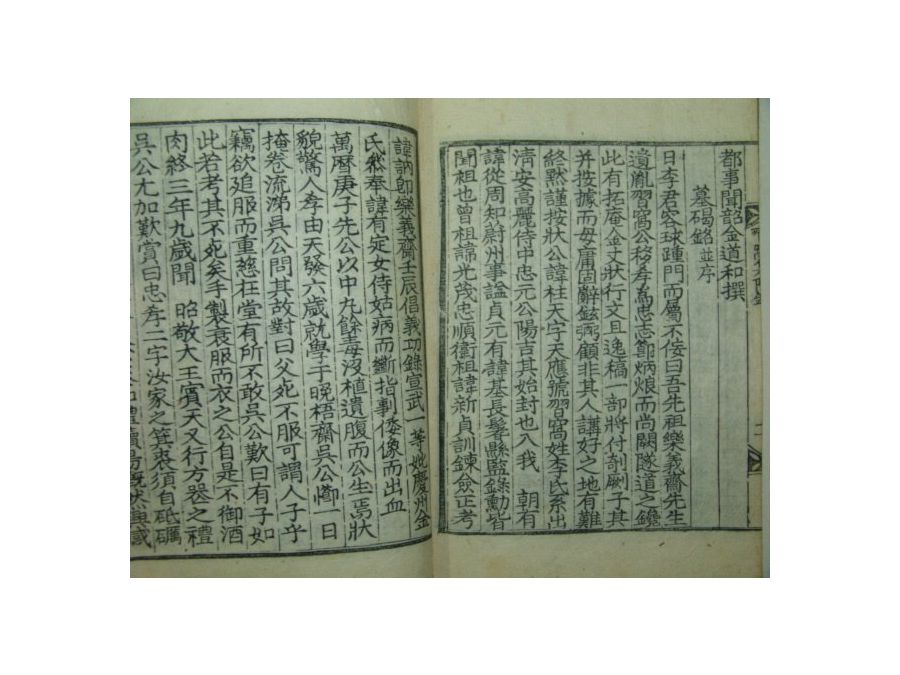 都事聞韶金道和撰
墓碣銘並序
日李君容球踵門而屬不佞曰吾先祖樂義齋先生
遺胤習窩公移孝爲忠志節炳烺而尚闕隧道之鑱
此有拓庵金丈狀行文且逸稿一部將付剞劂子其
并按據而毋庸固辭鉉㢸顧非其人講好之地有難
終默謹按狀公諱柱天字天應號習窩姓李氏系出
清安高麗侍中忠元公陽吉其始封也入我 朝有
諱從周知蔚州事諡貞元有諱基長鬐縣監錄勳皆
聞祖也曾祖諱光茂忠順衛祖諱新貞訓鍊僉正考
諱訥卽樂義齋壬辰倡義功錄宣武一等妣慶州金
氏㷡奉諱有定女侍姑病而斷指剚倭像而出血
萬曆庚子先公以中丸餘毒沒植遺腹而公生焉狀
貌驚人孝由天發六歲就學于晚梧齋吳公㦃一日
掩卷流涕吳公問其故對曰父死不服可謂人子乎
竊欲追服而重慈在堂有所不敢吳公歎曰有子如
此若考其不死矣手製衰服而衣之公自是不御酒
肉終三年九歲聞 昭敬大王賓天又行方喪之禮
吳公尤加歎賞曰忠孝二字汝家之箕裘須自砥礪